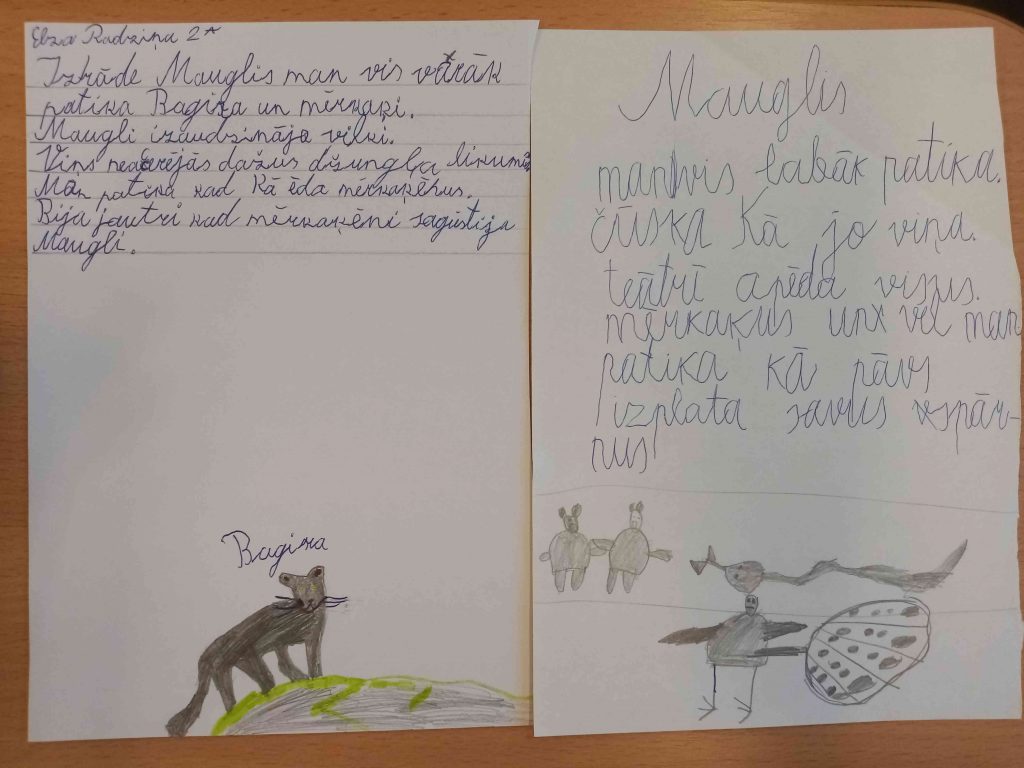 Elza Radziņa 2a
Izrāde Mauglis man vis vārāk
patika Bagira un mērkaķi.
Maugli izaudzināja vilki.
Viņš neatcrējās dažus džungļa likumus.
Man patika kad Kā ēda mērkaķēnus.
Bija jautri kad mērkaķēni sagūstīja
Maugli.
Bagira
Mauglis
man vis labāk patika.
čūska Kā jo viņa.
teātrī apēda visus.
mērkaķus un vēl man
patika kā pāvs
izplata savus spār-
nus